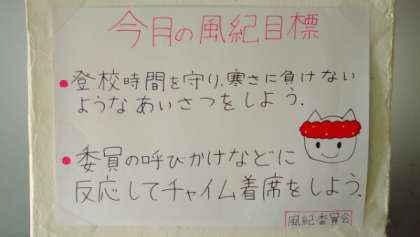 今月の風紀目標
•登校時間を守り、寒さに負けない
ようなあいさつをしよう。
•委員の呼びかけなどに
反応してチャイム着席をしよう。
風紀委員会